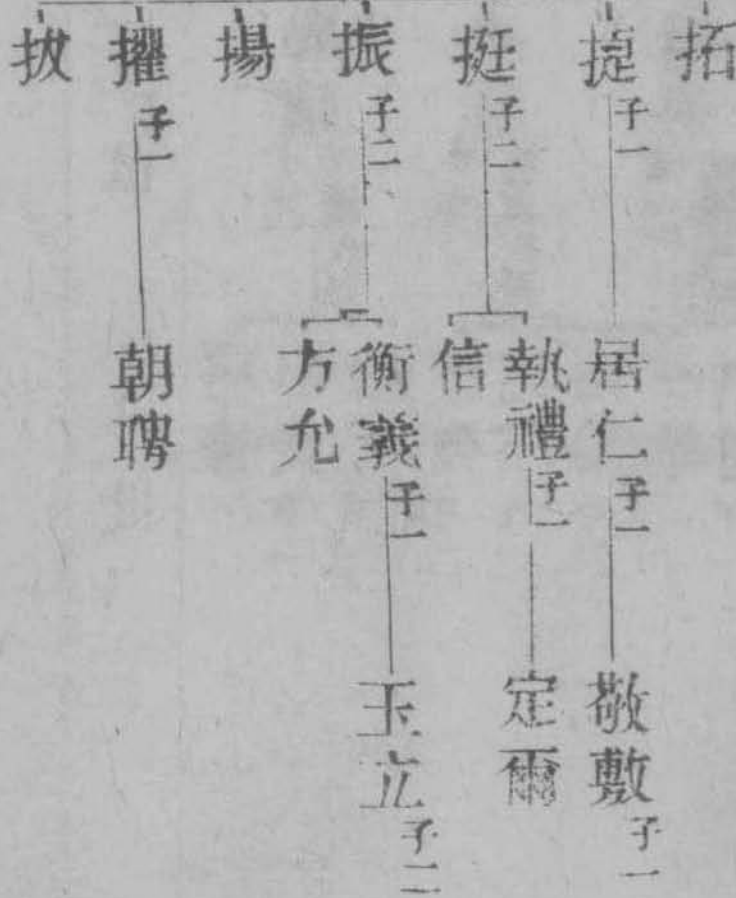 拓
㨗子一
居仁子一
敬敷子一
挺子二
執禮子一
定爾
信
振子二
衡義子一
玉立子二
方允
揚
擢子一
朝聘
拔